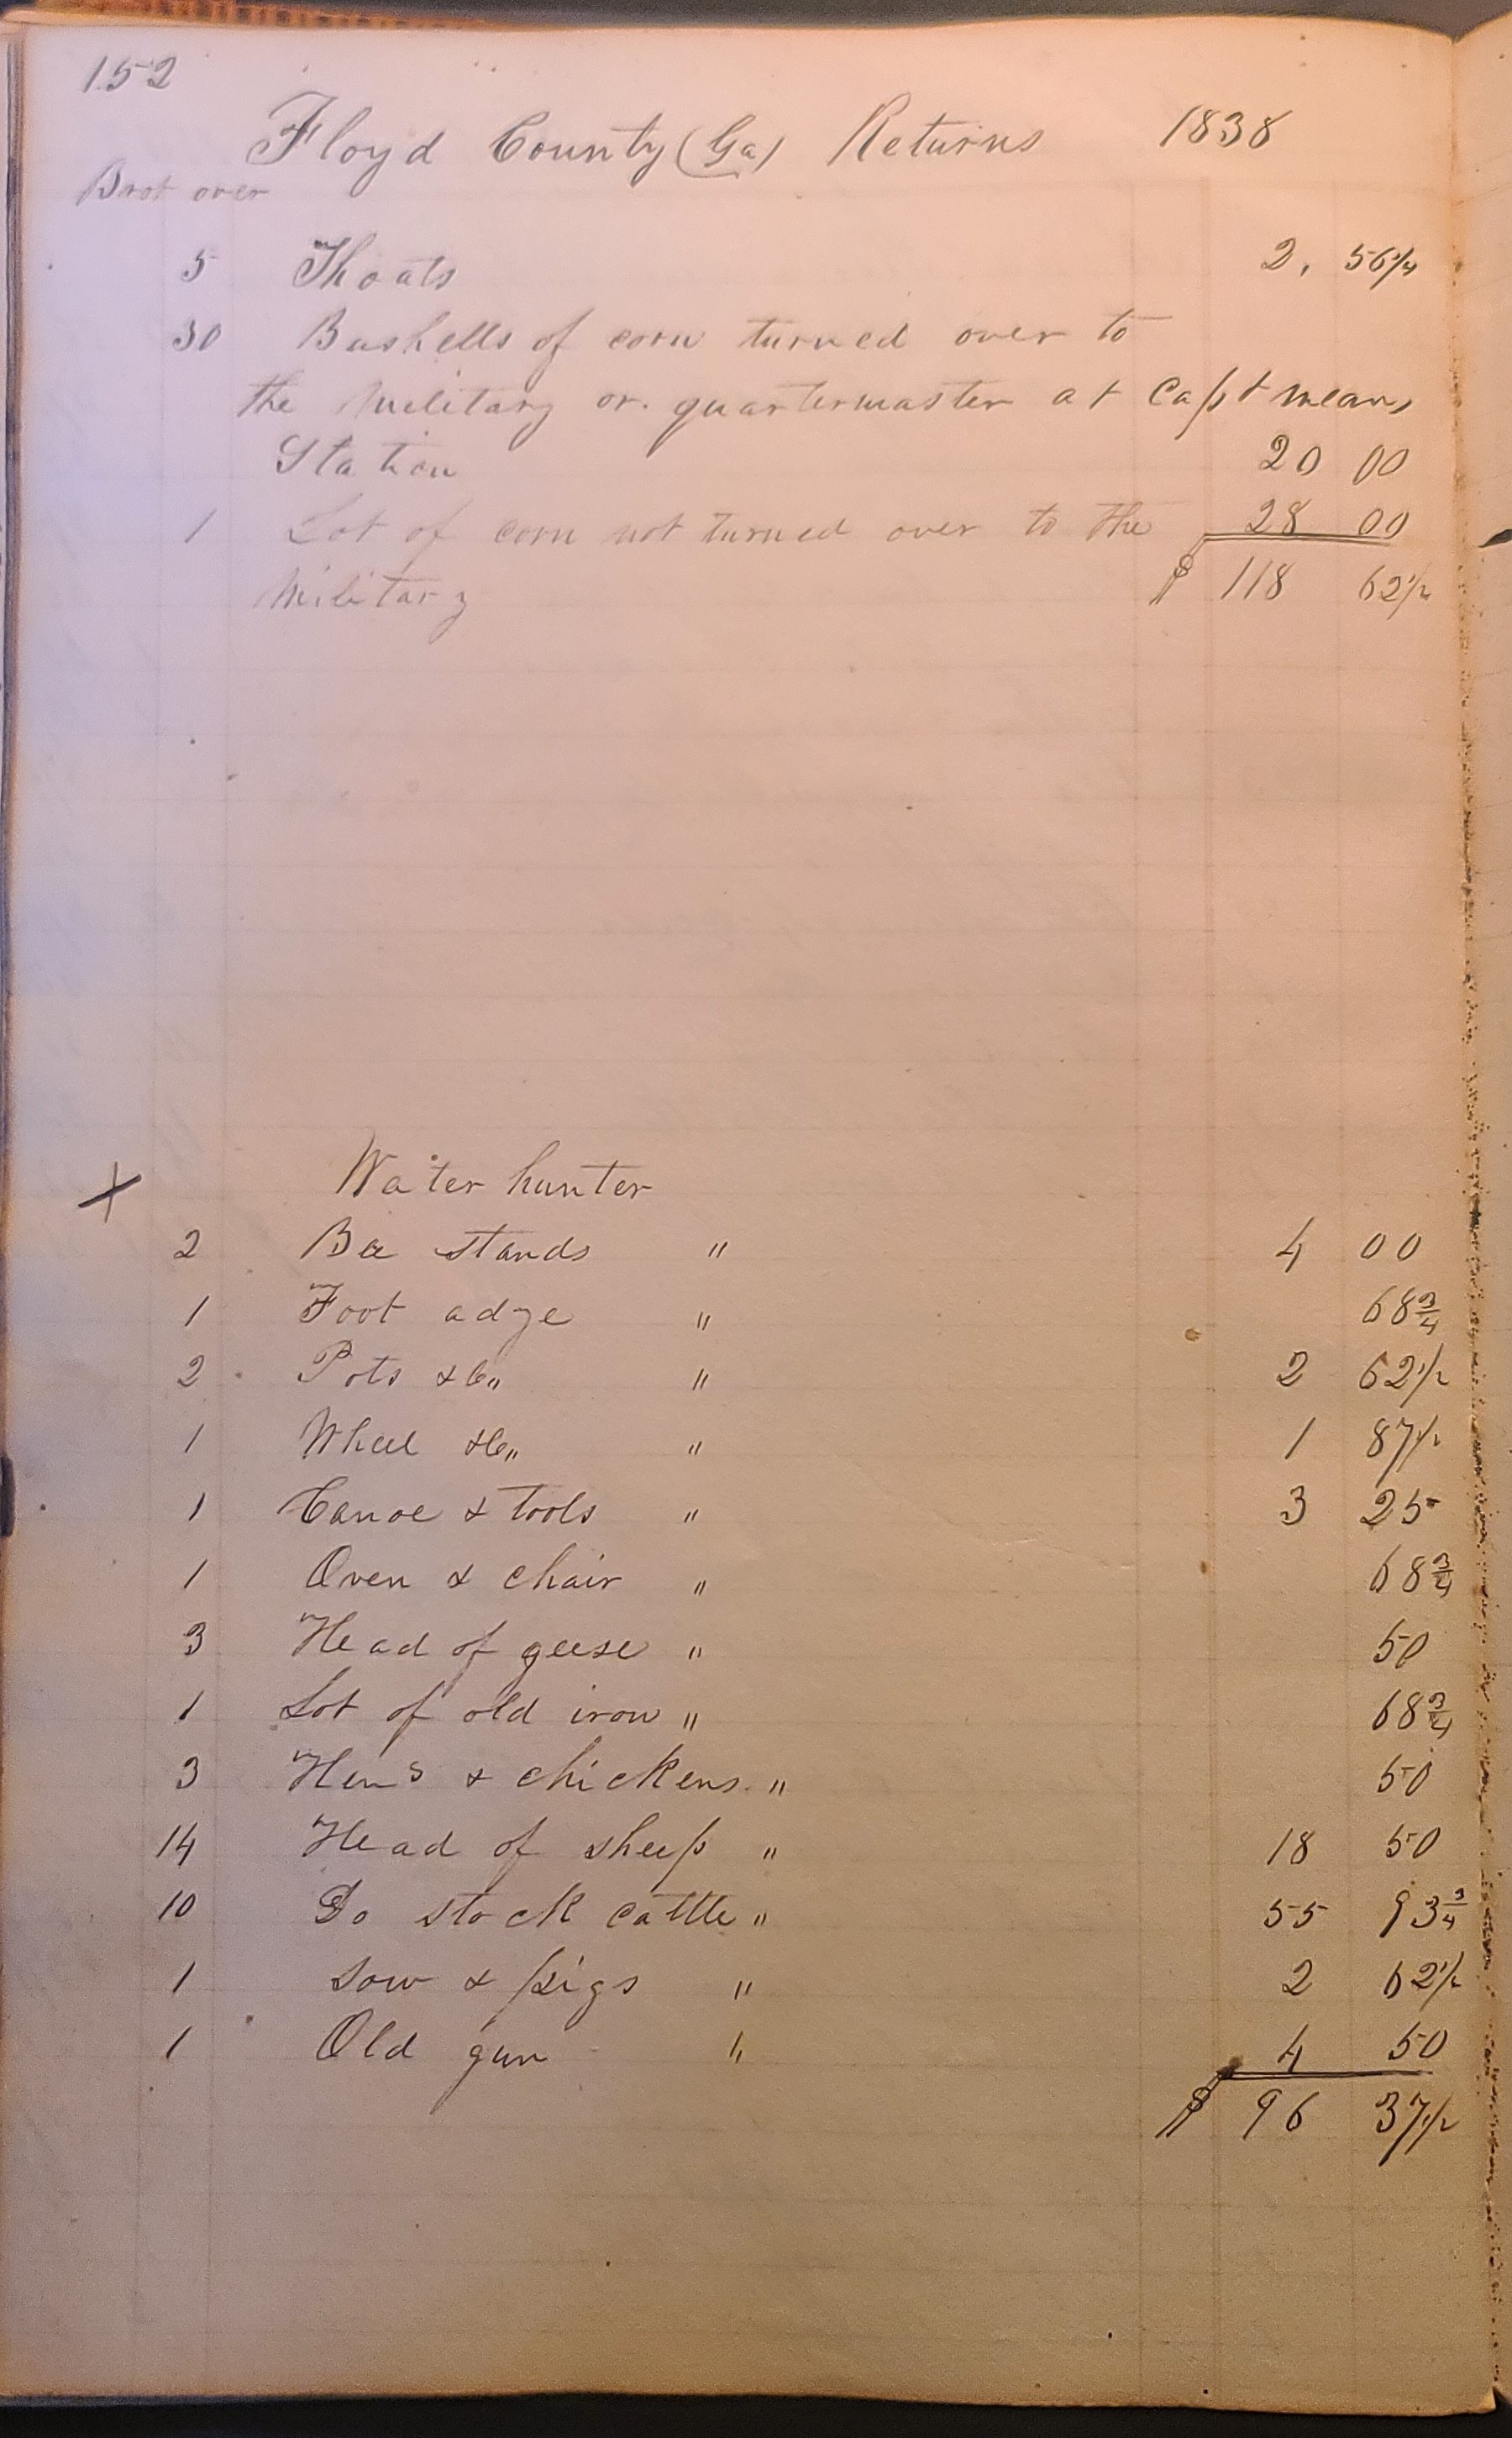 152
Floyd County (Ga) Returns 1838
Brot over
5 Shoats 2, 56 1/4
30 Bushells of corn turned over to
the Military or quartermaster at Capt means
Station 20 00
1 Lot of corn not turned over to the 28 00
Military $ 118 62 1/2
X Water hunter
2 Bee stands " 4 00
1 Foot adze " 68 3/4
2 Pots &c " 2 62 1/2
1 Wheel &c " 1 87 1/2
1 Canoe & tools " 3 25
1 Oven & chair " 68 3/4
3 Head of geese " 50
1 Lot of old iron " 68 3/4
3 Hens & chickens " 50
14 Head of sheep " 18 50
10 Do stock cattle " 55 93 3/4
1 Sow & pigs " 2 62 1/2
1 Old gun " 4 50
$ 96 37 1/2